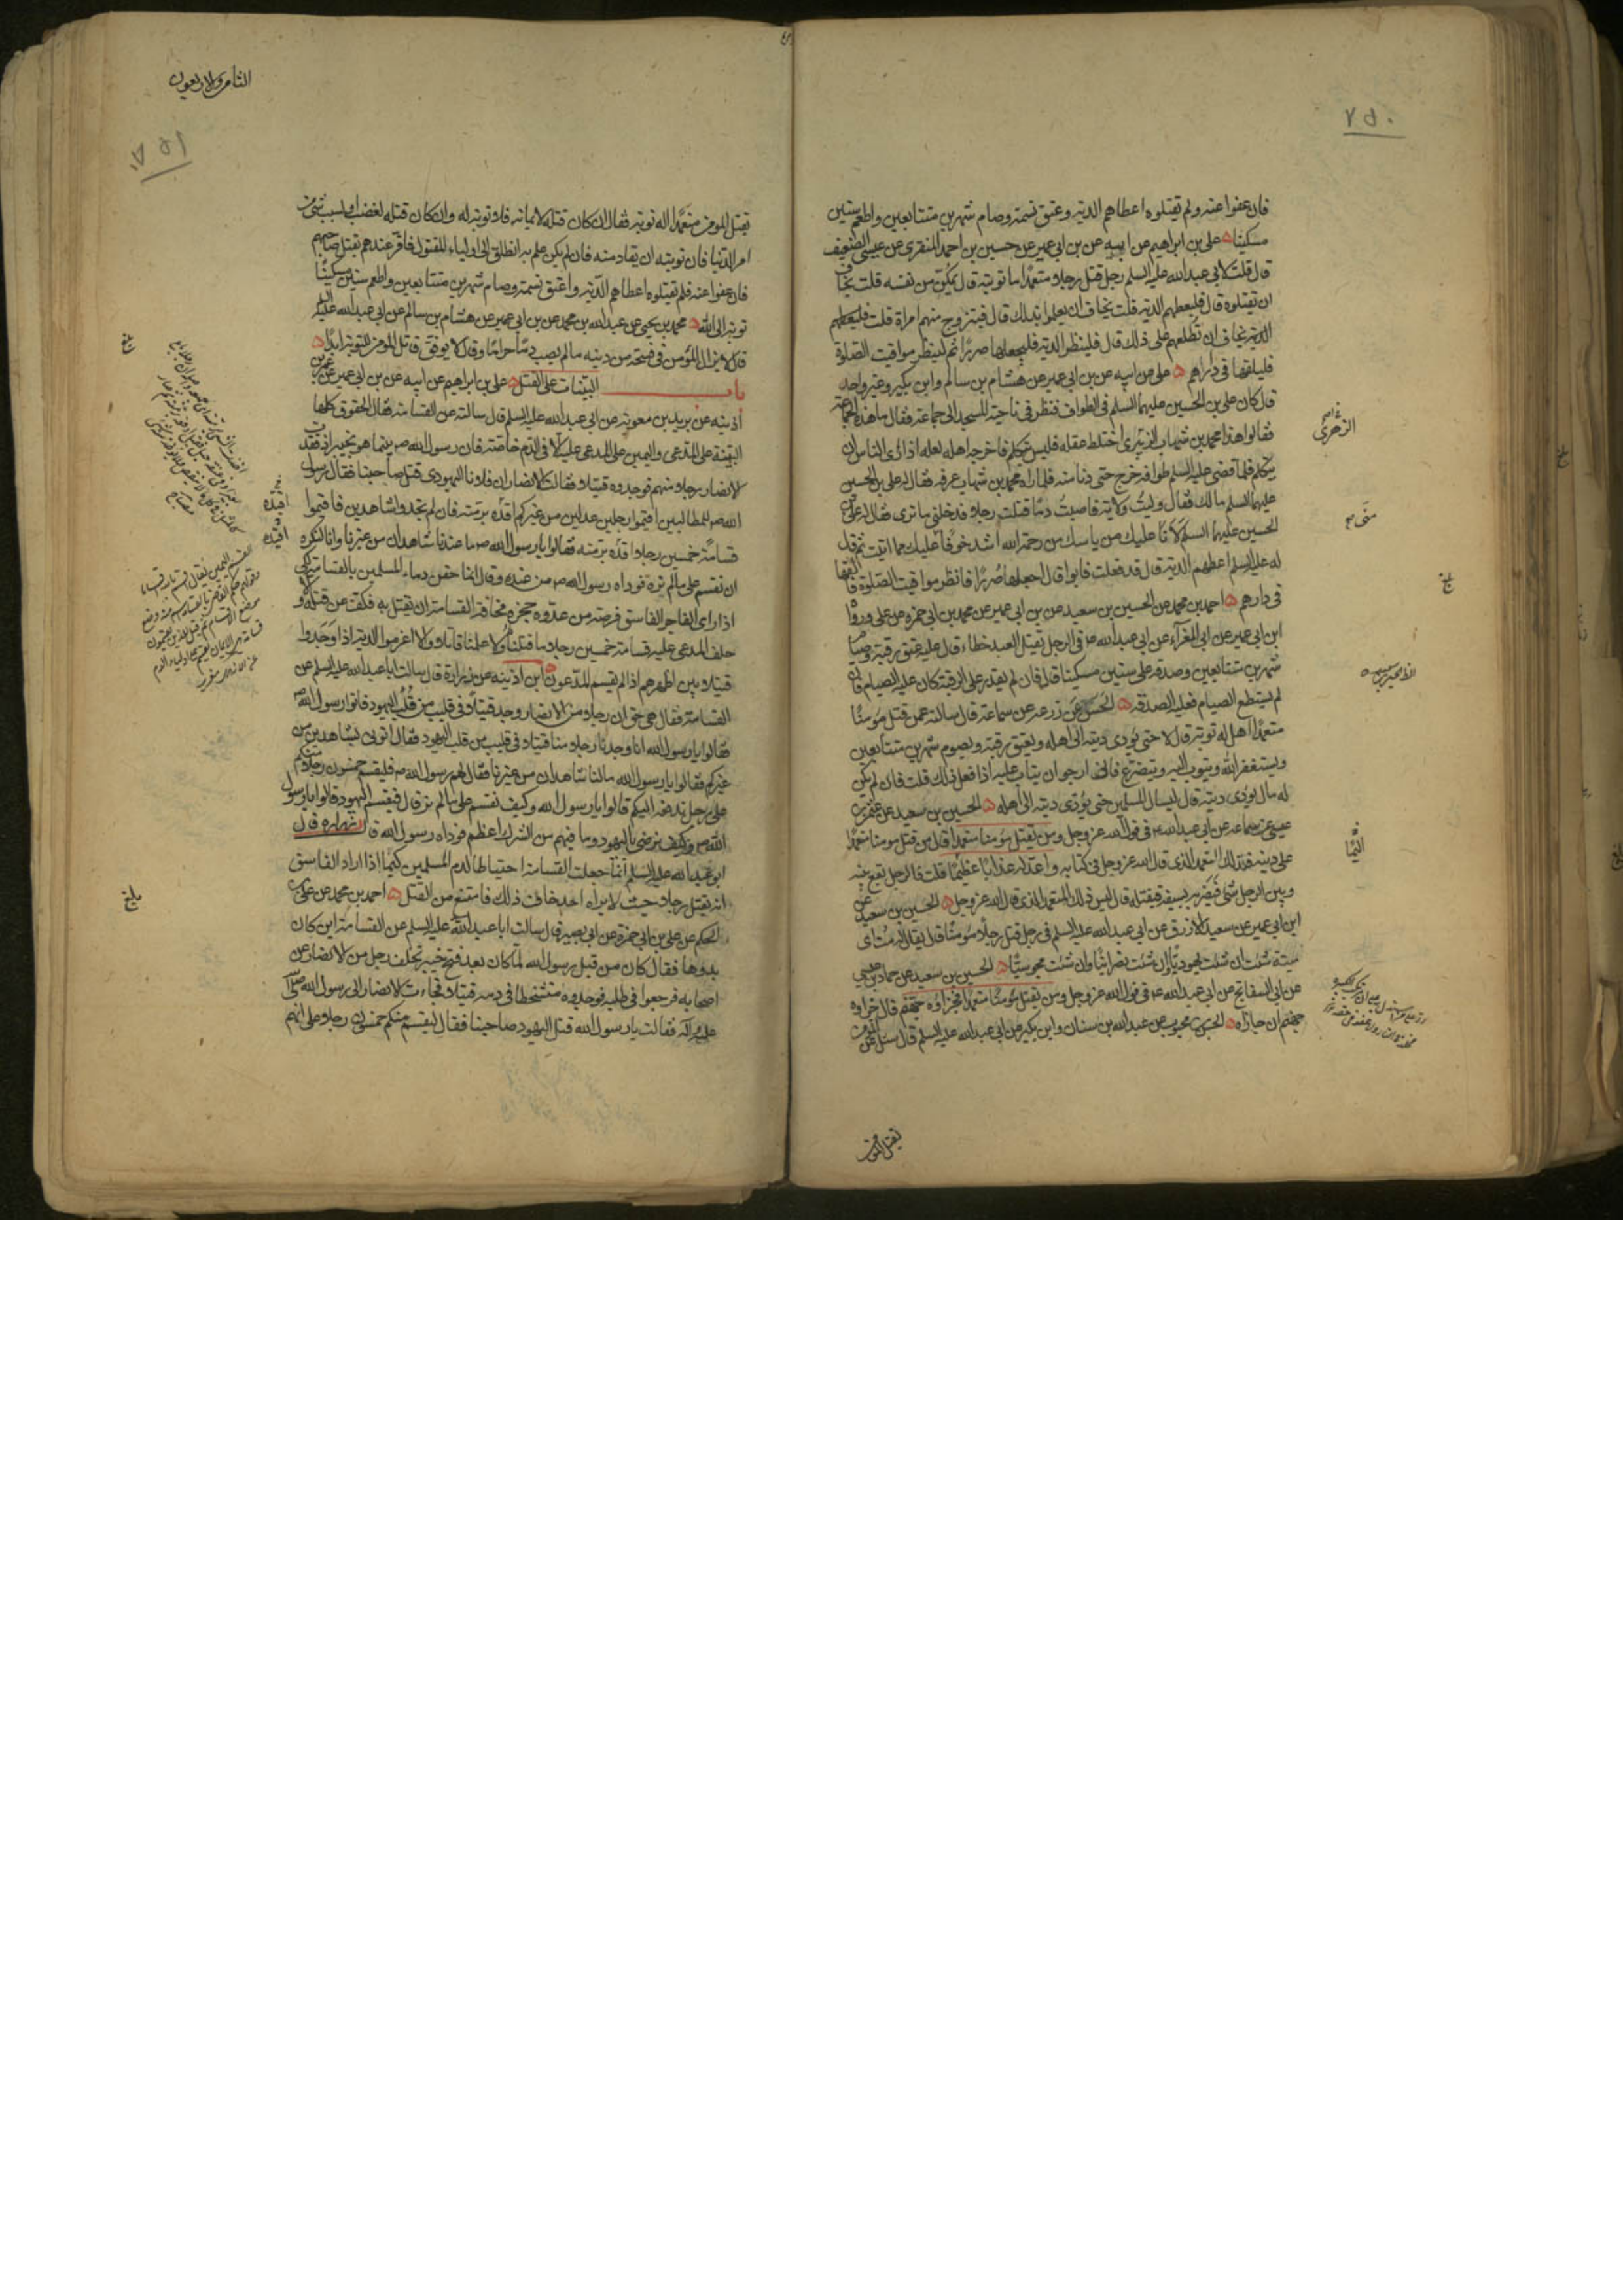 ٧٥٠
فان عفوا عنه ولم يقتلوه اعطاهم الدية وعتق نسمة وصام شهرين متتابعين واطعم ستين
مسكينا علي بن ابراهيم عن ابيه عن بن ابي عمير عن حسين بن احمد المنقري عن عيسى الضعيف
قال قلت لابي عبدالله عليه السلم رجل قتل رجلا متعمدا ما توبته قال يمكن من نفسه قلت يخاف
ان يقتلوه قال فليعطهم الدية قلت يخاف ان يعلموا بذلك قال فيتزوج منهم امراة قلت فليعطهم
الدية يخاف ان تطلعهم على ذلك قال فلينظر الدية فليجعلها صررا ثم لينظر مواقيت الصلوة
فليلقها في دارهم علي عن ابيه عن بن ابي عمير عن هشام بن سالم وابن بكير وغير واحد
قال كان علي بن الحسين عليهما السلم في الطواف فنظر في ناحية المسجد الى جماعة فقال ما هذه الجماعة
فقالوا هذا محمد بن شهاب الزهري اختلط عقله فليس يتكلم فاخرجه اهله لعله اذا راى الناس ان
يتكلم فلما قضى عليه السلم طوافه خرج حتى دنا منه فلما راه محمد بن شهاب عرفه فقال له علي بن الحسين
عليهما السلم مالك فقال وليت ولاية فاصبت دما قتلت رجلا فدخلني ما ترى فقال له علي بن
الحسين عليهما السلم لانا عليك من ياسك من رحمة الله اشد خوفا عليك مما اتيت ثم قال
له عليه السلم اعطهم الدية قال قد فعلت فابوا قال اجعلها صررا فانظر مواقيت الصلوة فالقها
في دارهم احمد بن محمد عن الحسين بن سعيد عن بن ابي عمير عن محمد بن ابي حمزه عن علي ورووا
ابن ابي عمير عن ابي المغرآء عن ابي عبدالله ع في الرجل يقتل العبد خطاء قال عليه عتق رقبة وصيام
شهرين متتابعين وصدقة على ستين مسكينا قال فان لم يقدر على الرقبة كان عليه الصيام فان
لم يستطع الصيام فعليه الصدقة الحسن عن زرعه عن سماعة قال سالته عمن قتل مؤمنا
متعمدا هل له توبة قال لا حتى يؤدي ديته الى اهله ويعتق رقبة ويصوم شهرين متتابعين
ويستغفر الله ويتوب اليه ويتضرع فاني ارجو ان يتاب عليه اذا فعل ذلك قلت فان لم يكن
له مال يؤدي ديته قال يسال المسلمين حتى يؤدي ديته الى اهله الحسين بن سعيد عن عثمان بن
عيسى عن سماعه عن ابي عبدالله ع في قول الله عز وجل ومن يقتل مؤمنا متعمدا قال من قتل مومنا متعمدا
على دينه فذلك المتعمد الذي قال الله عز وجل في كتابه واعد له عذابا عظيما قلت فالرجل يقع بينه
وبين الرجل شئ فيضربه بسيفه فيقتله قال ليس ذلك المتعمد الذي قال الله عز وجل الحسين بن سعيد عن
ابن ابي عمير عن سعيد الازرق عن ابي عبدالله عليه السلم في رجل قتل رجلا مؤمنا قال يقال له مت اي
ميتة شئت ان شئت يهوديا وان شئت نصرانيا وان شئت مجوسيا الحسين بن سعيد عن حماد بن عيسى
عن ابي السفاتج عن ابي عبدالله ع في قول الله عز وجل ومن يقتل مؤمنا متعمدا فجزاؤه جهنم قال جزاوه
جهنم ان جازاه الحسن بن محبوب عن عبدالله بن سنان وابن بكير عن ابي عبدالله عليه السلم قال سئل عن المومن
يقتل المومن
الزهري
الثامن والاربعون
٧٥١
يقتل المومن متعمدا اله توبة فقال ان كان قتله لايمانه فلا توبة له وان كان قتله لغضب او لسبب شئ من
امر الدنيا فان توبته ان يقاد منه فان لم يكن علم به انطلق الى اولياء المقتول فاقر عندهم بقتل صاحبهم
فان عفوا عنه فلم يقتلوه اعطاهم الدية واعتق نسمة وصام شهرين متتابعين واطعم ستين مسكينا
توبة الى الله محمد بن يحيى عن عبدالله بن محمد عن بن ابي عمير عن هشام بن سالم عن ابي عبدالله عليه السلم
قال لا يزال المؤمن في فسحة من دينه مالم يصب دما حراما وقال لا يوفق قاتل المومن للتوبة ابدا
باب البينات على القتل علي بن ابراهيم عن ابيه عن بن ابي عمير عن عمر بن
اذينه عن بريد بن معوية عن ابي عبدالله عليه السلم قال سالته عن القسامة فقال الحقوق كلها
البينة على المدعي واليمين على المدعى عليه الا في الدم خاصة فان رسول الله ص بينما هو بخيبر اذ فقدت
الانصار رجلا منهم فوجدوه قتيلا فقالت الانصار ان فلانا اليهودي قتل صاحبنا فقال رسول
الله ص للمطالبين اقيموا رجلين عدلين من غيركم اقده برمته فان لم تجدوا شاهدين فاقيموا
قسامة خمسين رجلا اقده برمته فقالوا يا رسول الله ص ما عندنا شاهدان من غيرنا وانا لنكره
ان نقسم على مالم نره فوداه رسول الله ص من عنده وقال انما حقن دماء المسلمين بالقسامة لكي
اذا راى الفاجر الفاسق فرصة من عدوه حجزه مخافة القسامة ان يقتل به فكف عن قتله والا
حلف المدعى عليه قسامة خمسين رجلا ما قتلنا ولا علمنا قاتلا والا اغرموا الدية اذا وجدوا
قتيلا بين اظهرهم اذا لم يقسم المدعون ابن اذينه عن زرارة قال سالت ابا عبدالله عليه السلم عن
القسامة فقال هي حق ان رجلا من الانصار وجد قتيلا في قليب من قلب اليهود فاتوا رسول الله ص
فقالوا يا رسول الله انا وجدنا رجلا منا قتيلا في قليب من قلب اليهود فقال اتوني بشاهدين من
غيركم فقالوا يا رسول الله مالنا شاهدان من غيرنا فقال لهم رسول الله ص فليقسم خمسون رجلا منكم
على رجل ندفعه اليكم قالوا يا رسول الله وكيف نقسم على مالم نر قال فيقسم اليهود قالوا يا رسول
الله ص وكيف نرضى باليهود وما فيهم من الشرك اعظم فوداه رسول الله قال زراره قال
ابو عبدالله عليه السلم انما جعلت القسامة احتياطا لدم المسلمين كيما اذا اراد الفاسق
ان يقتل رجلا حيث لا يراه احد خاف ذلك فامتنع من القتل احمد بن محمد عن علي بن
الحكم عن علي بن ابي حمزة عن ابي بصير قال سالت ابا عبدالله عليه السلم عن القسامة اين كان
بدوها فقال كان من قبل رسول الله لما كان بعد فتح خيبر تخلف رجل من الانصار عن
اصحابه فرجعوا في طلبه فوجدوه متشخطا في دمه قتيلا فجاءت الانصار الى رسول الله صلى
عليه واله فقالت يا رسول الله قتل اليهود صاحبنا فقال ليقسم منكم خمسون رجلا على انهم